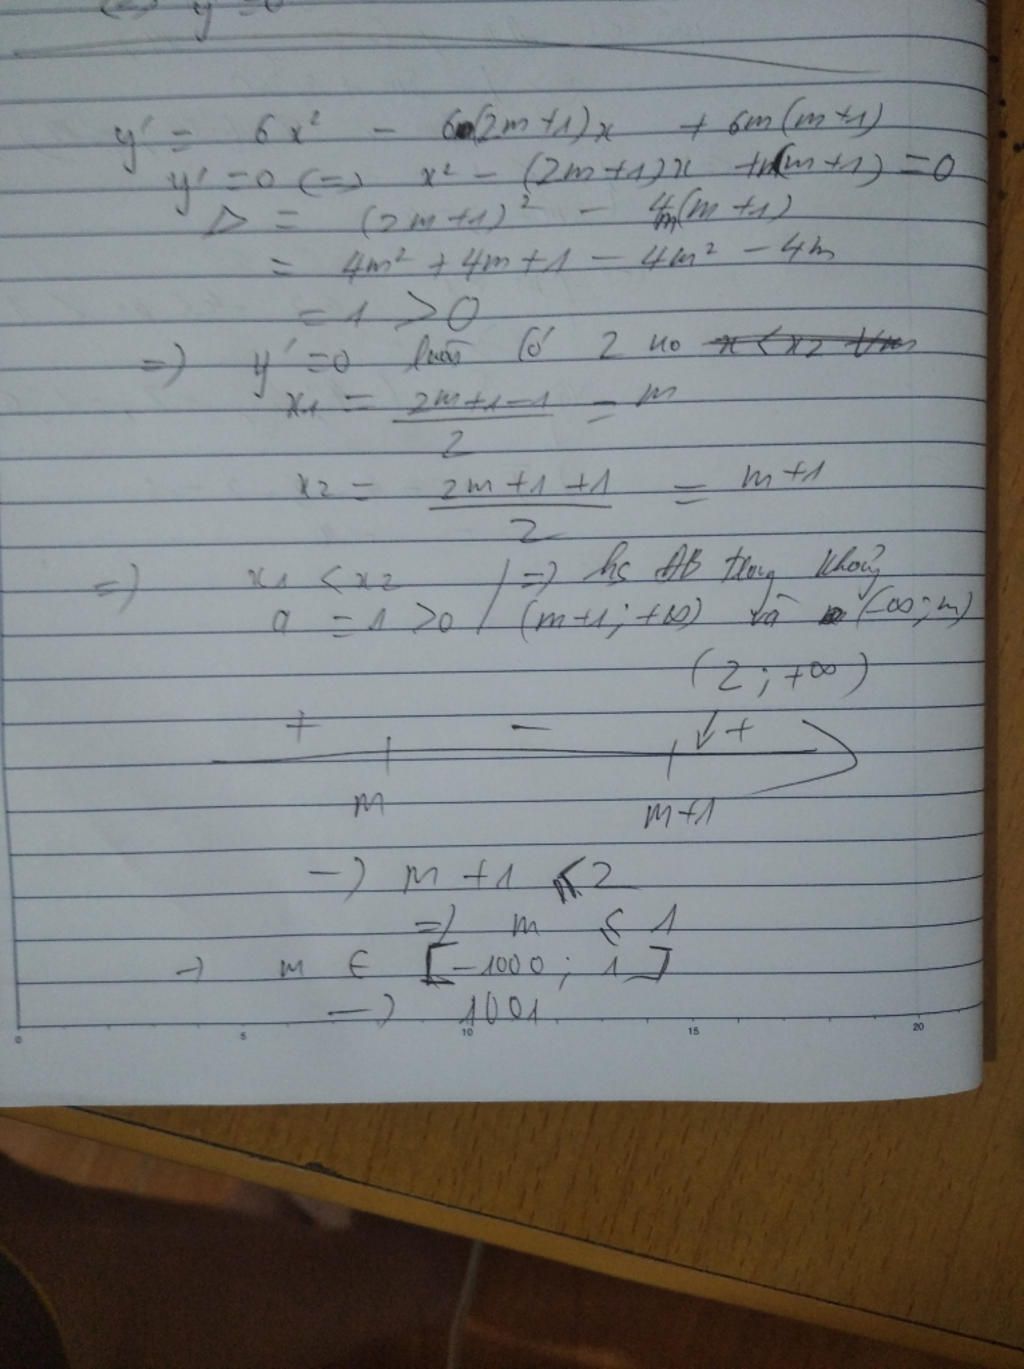 y' = 6x² - 6(2m+1)x + 6m(m+1)
y' = 0 (=) x² - (2m+1)x + m(m+1) = 0
Δ = (2m+1)² - 4m(m+1)
= 4m² + 4m + 1 - 4m² - 4m
= 1 > 0
=) y' = 0 luôn có 2 no
x1 = (2m+1-1)/2 = m
x2 = (2m+1+1)/2 = m+1
=) x1 < x2 / =) hs ĐB trong khoảng
a = 1 > 0 / (m+1; +∞) và (-∞; m)
(2; +∞)
+ - +
m m+1
-) m+1 ≤ 2
=) m ≤ 1
-) m ∈ [-1000; 1]
-) 1001
0 5 10 15 20